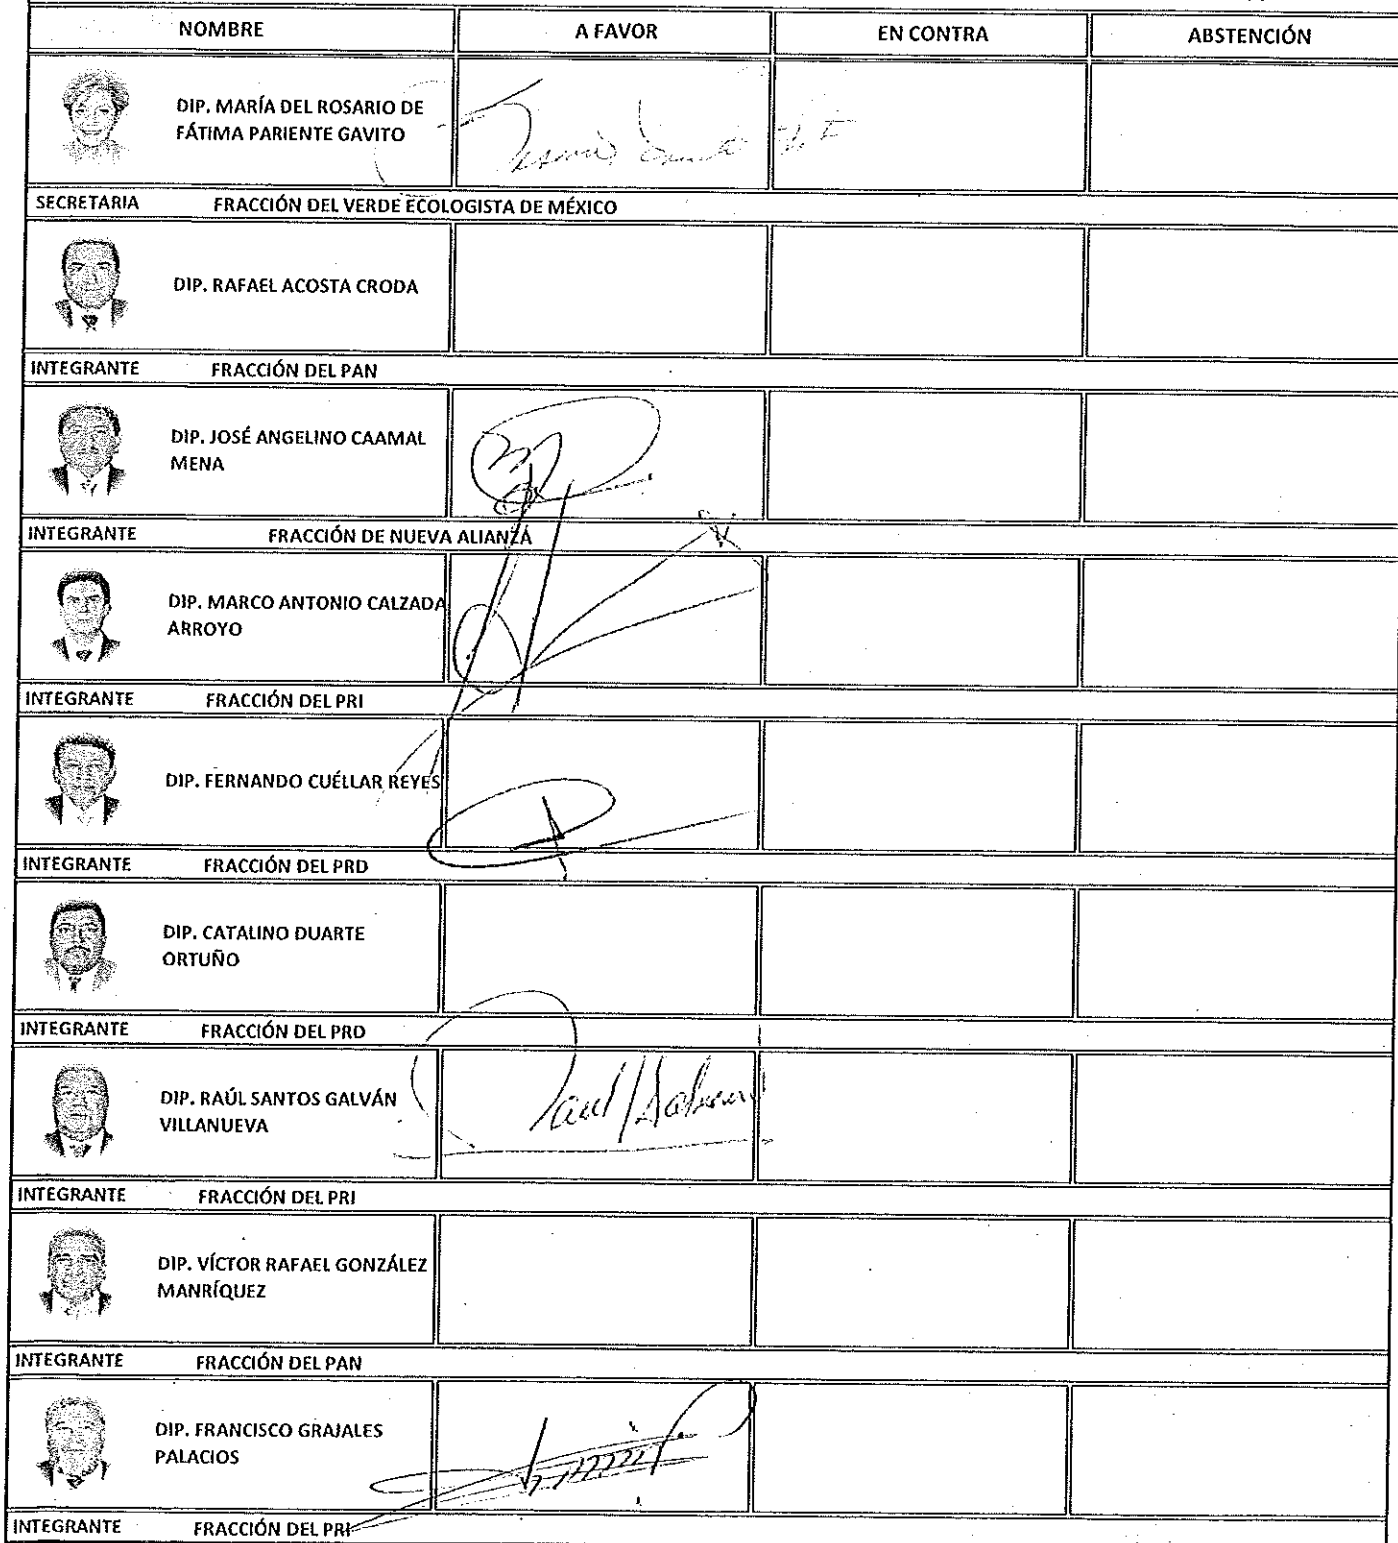 NOMBRE A FAVOR EN CONTRA ABSTENCIÓN
DIP. MARÍA DEL ROSARIO DE
FÁTIMA PARIENTE GAVITO
SECRETARIA FRACCIÓN DEL VERDE ECOLOGISTA DE MÉXICO
DIP. RAFAEL ACOSTA CRODA
INTEGRANTE FRACCIÓN DEL PAN
DIP. JOSÉ ANGELINO CAAMAL
MENA
INTEGRANTE FRACCIÓN DE NUEVA ALIANZA
DIP. MARCO ANTONIO CALZADA
ARROYO
INTEGRANTE FRACCIÓN DEL PRI
DIP. FERNANDO CUÉLLAR REYES
INTEGRANTE FRACCIÓN DEL PRD
DIP. CATALINO DUARTE
ORTUÑO
INTEGRANTE FRACCIÓN DEL PRD
DIP. RAÚL SANTOS GALVÁN
VILLANUEVA
INTEGRANTE FRACCIÓN DEL PRI
DIP. VÍCTOR RAFAEL GONZÁLEZ
MANRÍQUEZ
INTEGRANTE FRACCIÓN DEL PAN
DIP. FRANCISCO GRAJALES
PALACIOS
INTEGRANTE FRACCIÓN DEL PRI